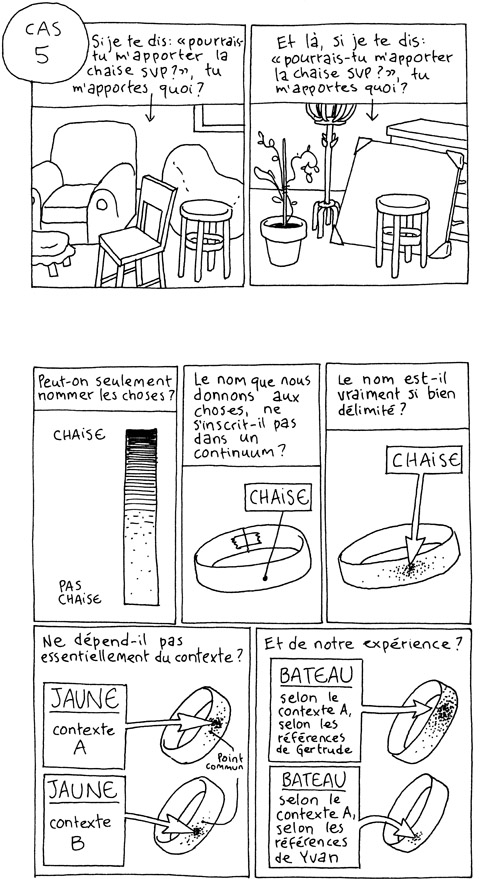 CAS
5
Si je te dis: «pourrais-
tu m'apporter la
chaise SVP?», tu
m'apportes quoi?
Et là, si je te dis:
«pourrais-tu m'apporter
la chaise SVP?», tu
m'apportes quoi?
Peut-on seulement
nommer les choses?
CHAISE
PAS
CHAISE
Le nom que nous
donnons aux
choses, ne
s'inscrit-il pas
dans un
continuum?
CHAISE
Le nom est-il
vraiment si bien
délimité?
CHAISE
Ne dépend-il pas
essentiellement du contexte?
JAUNE
contexte
A
Point
commun
JAUNE
contexte
B
Et de notre expérience?
BATEAU
selon le
contexte A,
selon les
références
de Gertrude
BATEAU
selon le
contexte A,
selon les
références
de Yvan